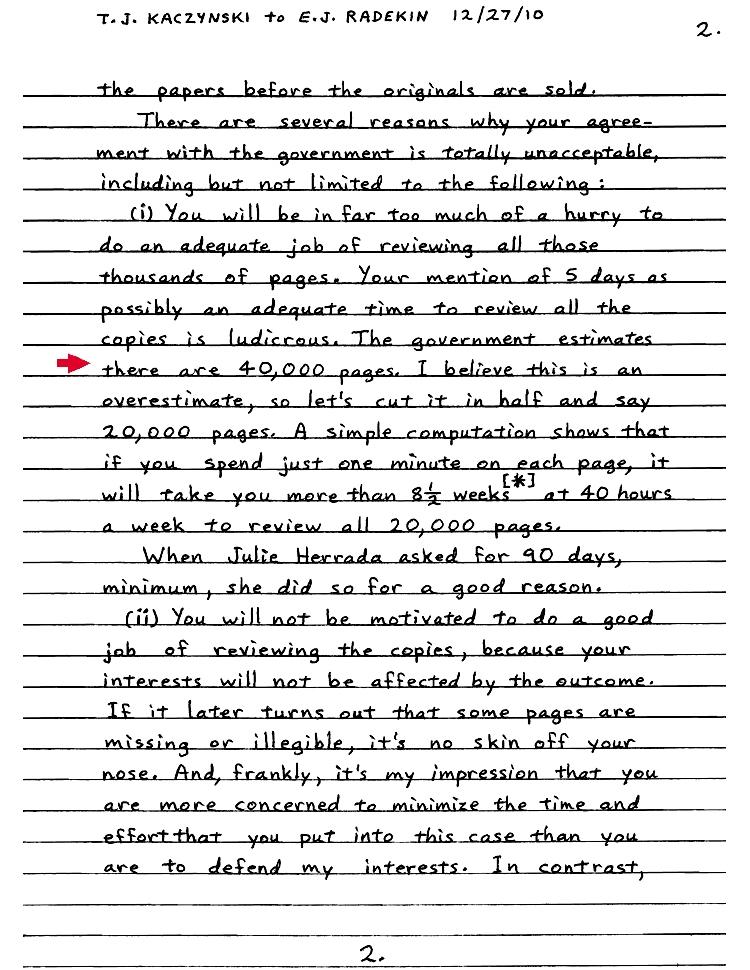 T.J. KACZYNSKI to E.J. RADEKIN 12/27/10
2.
the papers before the originals are sold.
There are several reasons why your agree-
ment with the government is totally unacceptable,
including but not limited to the following:
(i) You will be in far too much of a hurry to
do an adequate job of reviewing all those
thousands of pages. Your mention of 5 days as
possibly an adequate time to review all the
copies is ludicrous. The government estimates
there are 40,000 pages. I believe this is an
overestimate, so let's cut it in half and say
20,000 pages. A simple computation shows that
if you spend just one minute on each page, it
will take you more than 8½ weeks[*] at 40 hours
a week to review all 20,000 pages.
When Julie Herrada asked for 90 days,
minimum, she did so for a good reason.
(ii) You will not be motivated to do a good
job of reviewing the copies, because your
interests will not be affected by the outcome.
If it later turns out that some pages are
missing or illegible, it's no skin off your
nose. And, frankly, it's my impression that you
are more concerned to minimize the time and
effort that you put into this case than you
are to defend my interests. In contrast,
2.